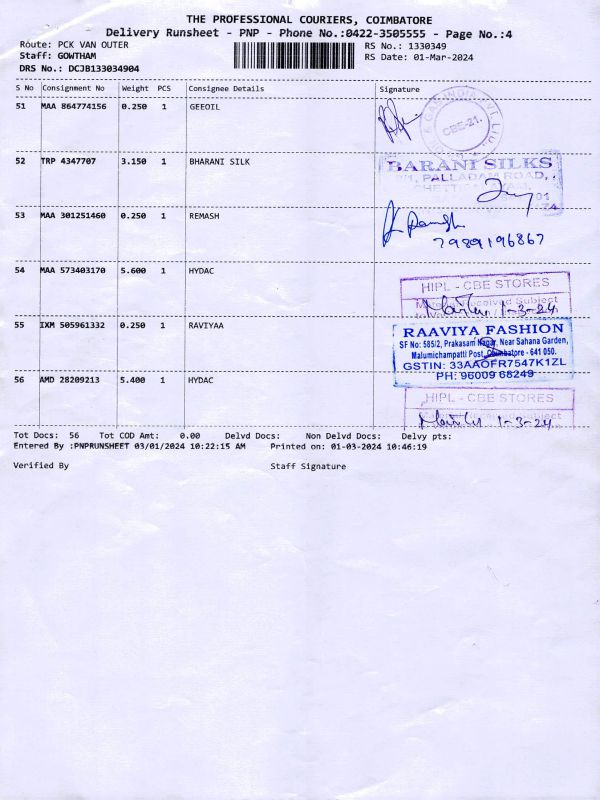 THE PROFESSIONAL COURIERS, COIMBATORE
Delivery Runsheet - PNP - Phone No.:0422-3505555 - Page No.:4
Route: PCK VAN OUTER
RS No.: 1330349
Staff: GOWTHAM
RS Date: 01-Mar-2024
DRS No.: DCJB133034904
S No Consignment No Weight PCS Consignee Details Signature
51 MAA 864774156 0.250 1 GEEOIL
CBE-21.
52 TRP 4347707 3.150 1 BHARANI SILK
BARANI SILKS
PALLADAM ROAD,
53 MAA 301251460 0.250 1 REMASH
7989196867
54 MAA 573403170 5.600 1 HYDAC
HIPL - CBE STORES
Material Received Subject
1-3-24
55 IXM 505961332 0.250 1 RAVIYAA
RAAVIYA FASHION
SF No: 585/2, Prakasam Nagar, Near Sahana Garden,
Malumichampatti Post, Coimbatore - 641 050.
GSTIN: 33AAOFR7547K1ZL
PH: 96009 68249
56 AMD 28209213 5.400 1 HYDAC
HIPL - CBE STORES
1-3-24
Tot Docs: 56 Tot COD Amt: 0.00 Delvd Docs: Non Delvd Docs: Delvy pts:
Entered By :PNPRUNSHEET 03/01/2024 10:22:15 AM Printed on: 01-03-2024 10:46:19
Verified By Staff Signature